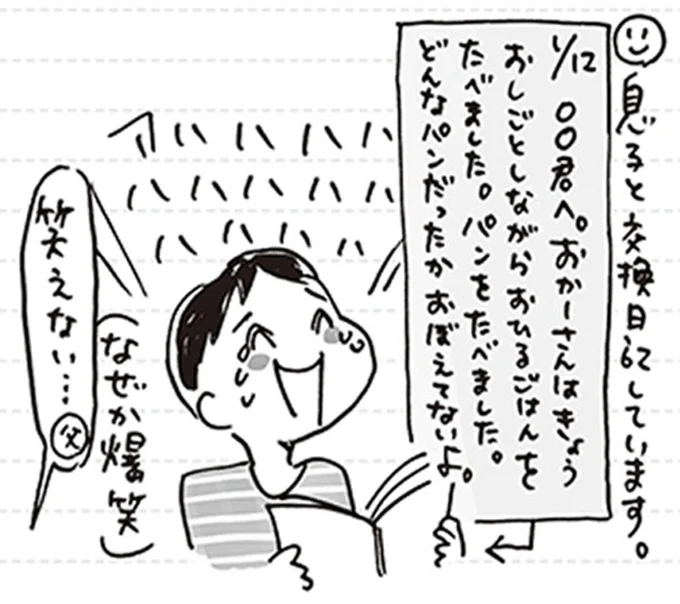 息子と交換日記しています。
1/12 〇〇君へ。おかーさんはきょう
おしごとしながらおひるごはんを
たべました。パンをたべました。
どんなパンだったかおぼえてないよ。
アハハハハ
ハハハハハ
ハハハハ
(なぜか爆笑)
笑えない…父